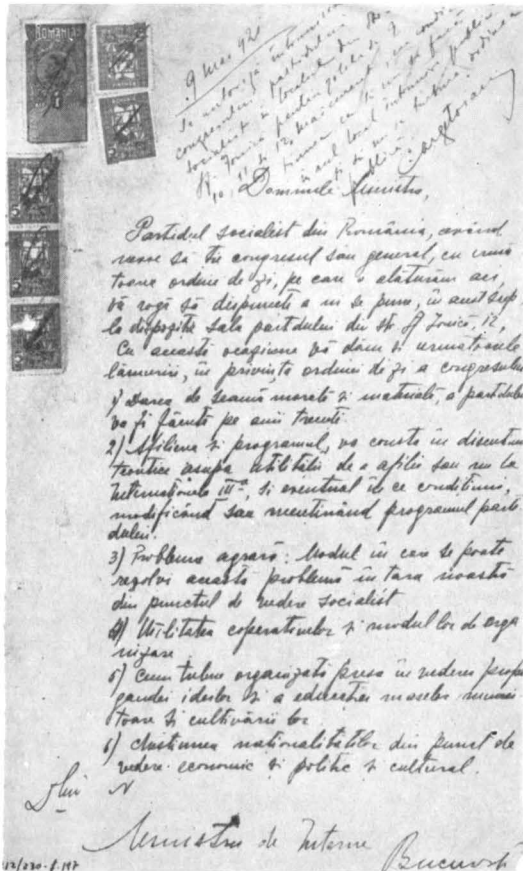 ROMANIA
9 Mai 921
Se autoriză întrunirea
congresului partidului
socialist în localul din str.
Sf. Ionică pentru zilele de 8,
10, 11 și 12 mai curent, cu condiția
publice
Argetoianu
Domnule Ministru,
Partidul socialist din România, având
nevoe să țíe congresul său general, cu urmă
toarea ordine de zi, pe care o alăturăm aci,
vă rogă să dispuneți a ni se pune, în acest scop
la dispoziție sala partidului din str. Sf Ionică, 12,
Cu această ocaziune vă dăm și urmatoarele
lămuriri, în privința ordinei de zi a congresului
1) Darea de seamă morală și materială, a partidului
va fi făcută pe anii trecuți.
2) Afilierea și programul, va consta în discuțiuni
teoretice asupra utilității de a afilia sau nu la
Internaționala III-a, și eventual în ce condițiuni,
modificând sau menținând programul parti
dului.
3) Problema agrară: Modul în care se poate
rezolvi această problemă în țara noastră
din punctul de vedere socialist
4) Utilitatea coperativelor și modul lor de orga
nizare
5) Cum trebue organizată presa în vederea propa
gandei ideilor și a educației maselor munci
toare și cultivării lor
6) Chestiunea naționalităților din punct de
vedere economic și politic și cultural.
D-lui
Ministru de Interne
București